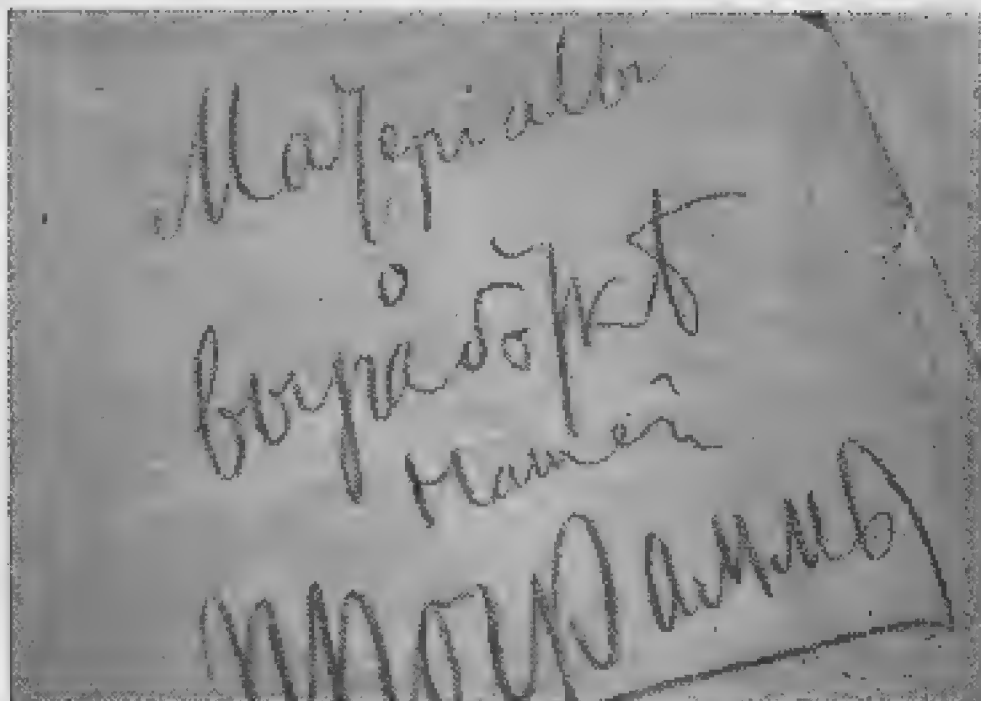 Матеріалы
о
выработкѣ
нашей
программы